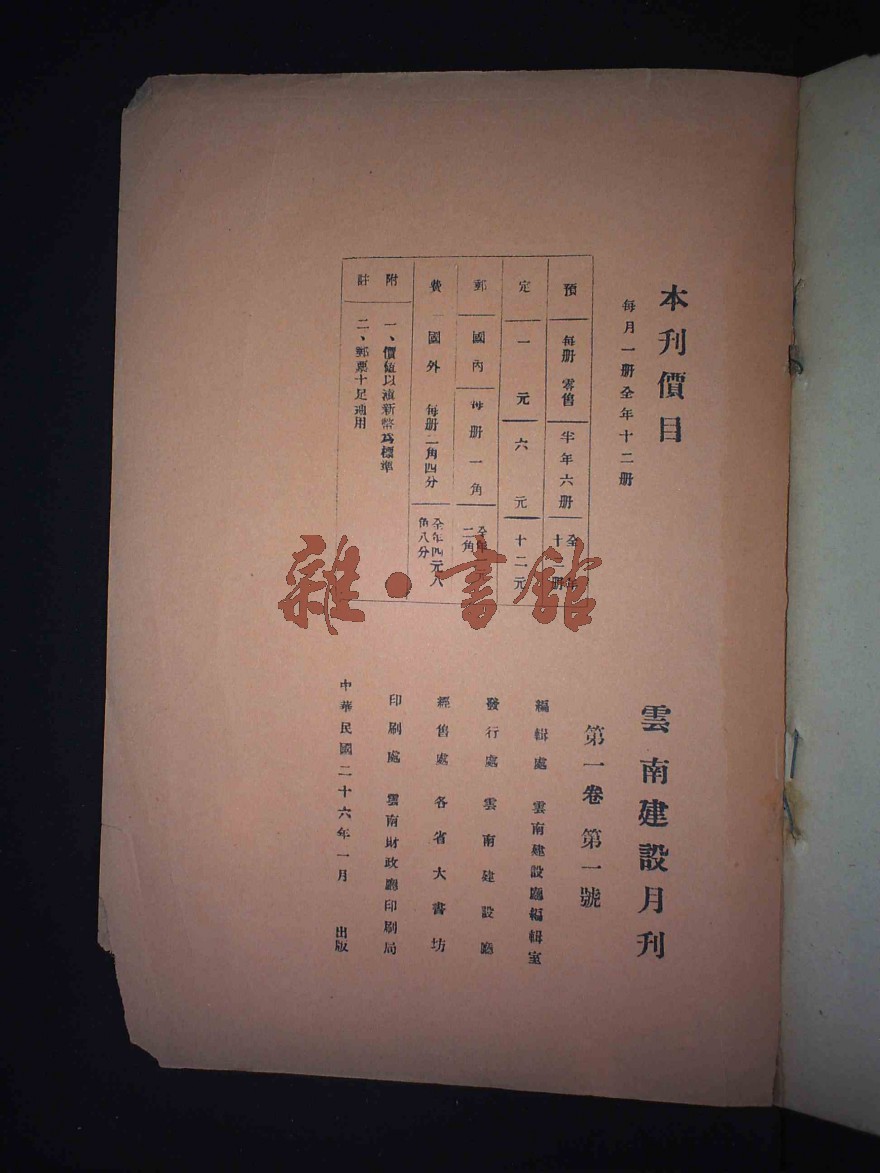 本刊價目
每月一册全年十二册
預 每册零售 半年六册 全年十二册
定 一元 六元 十二元
郵 國內 每册一角 全年
二角
費 國外 每册二角四分 全年四元八
角八分
附 一、價値以滇新幣爲標準
註 二、郵票十足通用
雲南建設月刊
第一卷 第一號
編輯處 雲南建設廳編輯室
發行處 雲南建設廳
經售處 各省大書坊
印刷處 雲南財政廳印刷局
中華民國二十六年一月 出版
雜·書館